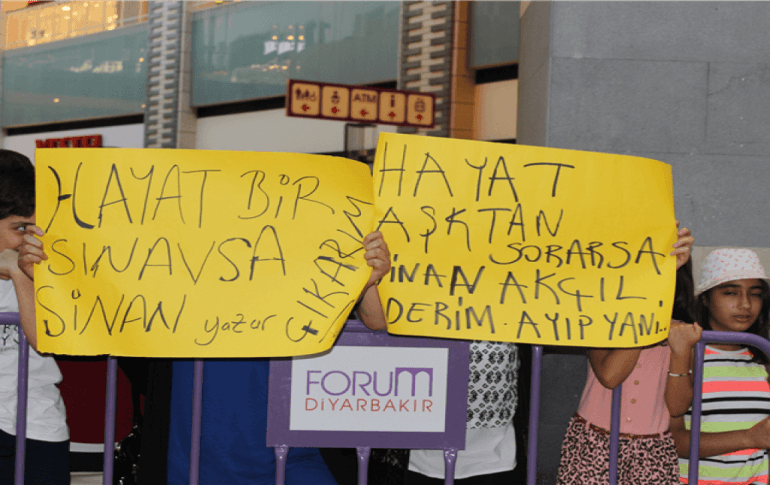 ATM
HAYAT BİR
SINAVSA
SİNAN yazar ÇIKARIM
HAYAT
AŞKTAN
SORARSA
SİNAN AKÇIL
DERİM. AYIP YANİ..
FORUM
DİYARBAKIR